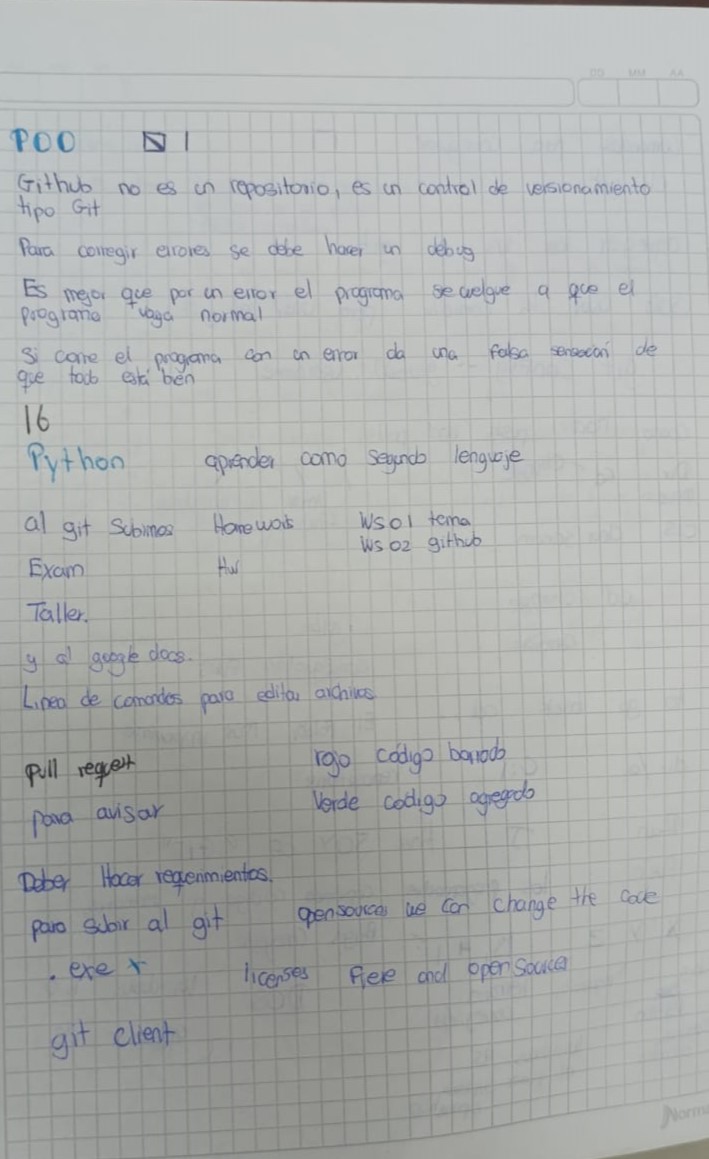 DD MM AA
POO 1
Github no es un repositorio, es un control de versionamiento
tipo Git
Para corregir errores se debe hacer un debug
Es mejor que por un error el programa se cuelgue a que el
programa vaya normal
Si corre el programa con un error da una falsa sensación de
que todo está bien
16
Python aprender como segundo lenguaje
al git Subimos Homewois WS01 tema
WS02 github
Exam Hw
Taller.
y al google docs.
Linea de comandos para editar archivos
pull request rojo código borrado
para avisar Verde codigo agregado
Deber Hacer requerimientos.
para subir al git opensources we can change the code
.exe x licenses Free and open Source
git client
Norma